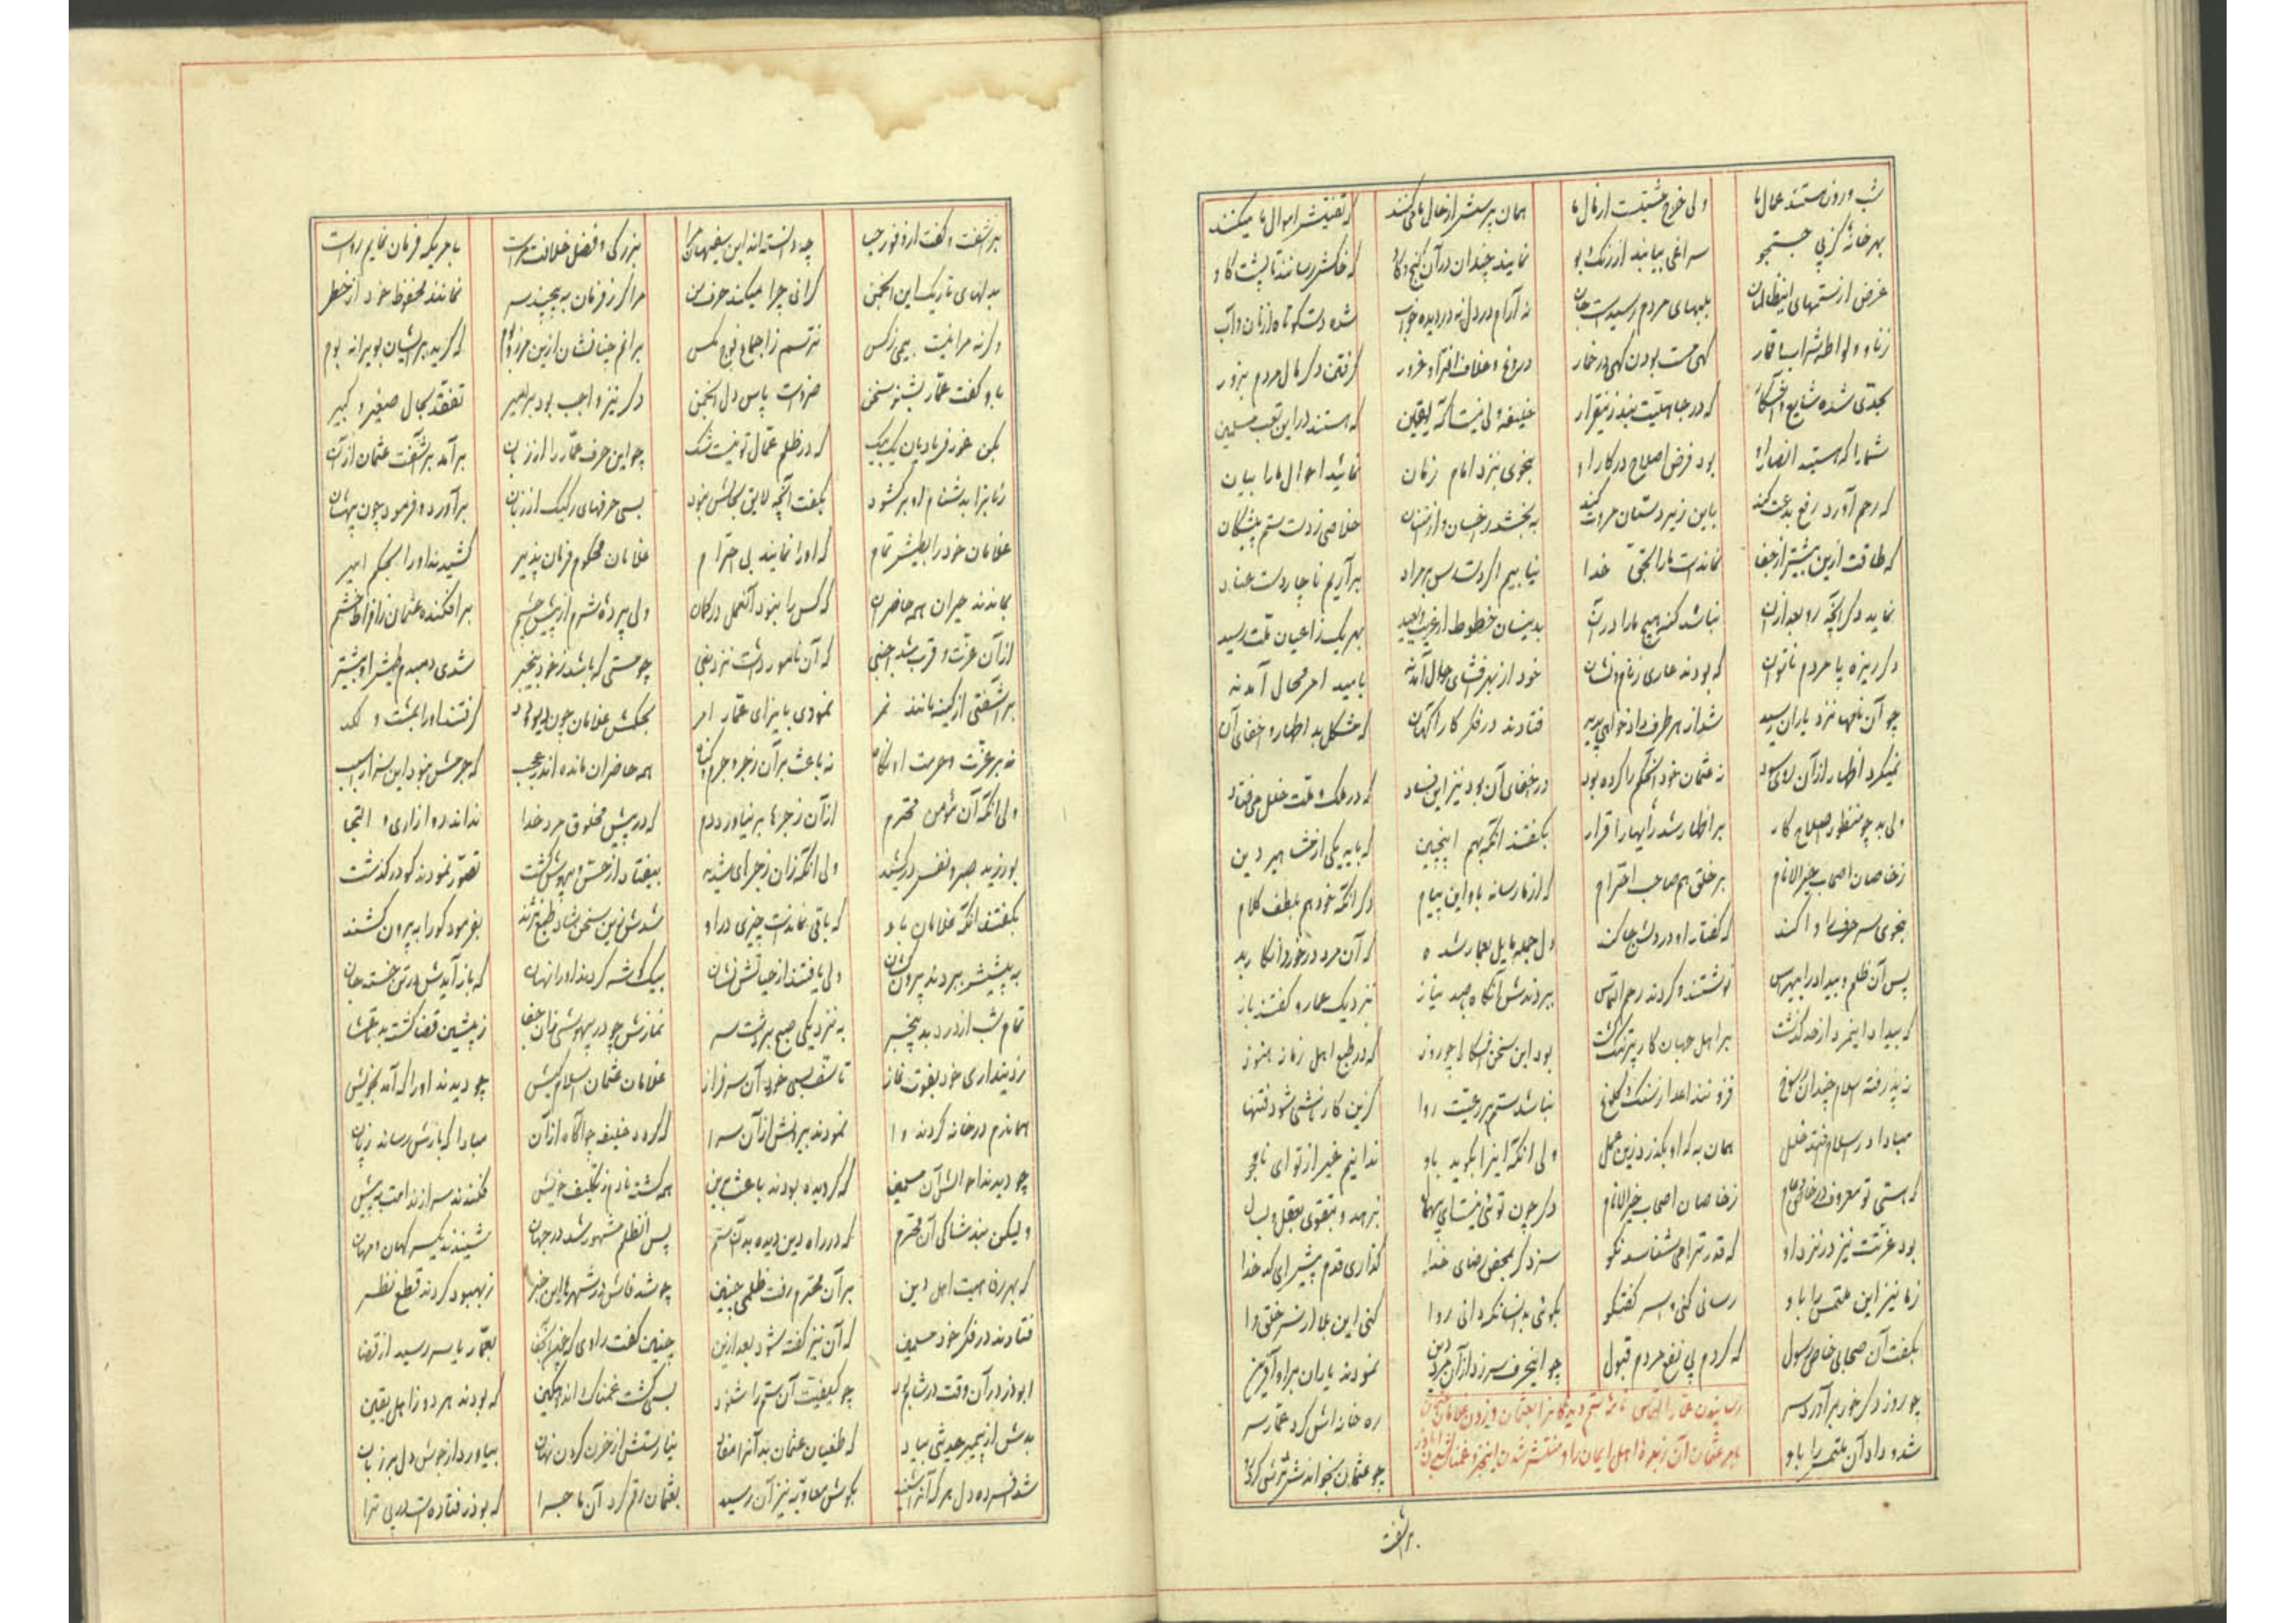 شب و روز هستند عمال ما ولی خرج عشیتست از مال ما همان پرسش از حال ما می‌کنند که تفتیش اموال ما میکنند
بهر خانهٔ کز پی جستجو سراغی بیابند از رنگ و بو نمایند چندان در آن کنج و کاو که خاکش رسانند تا پشت گاو
غرض از ستمهای این ظالمان بلبهای مردم رسیدست جان نه آرام در دل نه در دیده خواب شده دست کوتاه از نان و آب
زنا و لواطه شراب و قمار گهی مست بودن گهی در خمار دروغ و خلاف افترا و غرور گرفتن دگر مال مردم بزور
بحدی شده شایع و آشکار که در جاهلیت نبد زین قرار خلیفه ولی نیست آگه یقین که هستند در این تعب مسلمین
شما را که هستید انصار او بود فرض اصلاح در کار او بخوی نزد امام زمان نمائید احوال ما را بیان
که رحم آورد رفع بدعت کند باین زیردستان مروت کند به بخشد خلاصی ز دست ستم پیشگان
که طاقت ازین بیشتر از جفا نماندست ما را بحق خدا نیابیم اگر دسترس بر مراد برآریم ناچار دست عناد
نماید دگر آنچه رو بعد از آن نباشد گنه هیچ ما را در آن بدینسان خطوط از قریب و بعید بهر یک ز اعیان ملت رسید
دگر ریزه پا مردم ناتوان که بودند عاری ز نام و نشان خود از بهر افشای حال آمدند بامید امر محال آمدند
چو آن نامها نزد یاران رسید شد از هر طرف دادخواهی پدید فتادند در فکر کار آگهان که مشکل بد اظهار و اخفای آن
نمیکرد اظهار از آن روی سود که عثمان خود آن حکم را کرده بود در اخفای آن بود نیز این فساد که در ملک و ملت خلل می فتاد
ولی بد چو منظور اصلاح کار بر اظهار شد رأیها را قرار بگفتند آنگه بهم اینچنین که باید یکی از مشاهیر دین
ز خاصان اصحاب خیر الانام بر خلق هم صاحب احترام که از ما رساند باو این پیام دگر آنکه خود هم بلطف کلام
بخوی سر حرف را وا کند که گفتار او در دلش جا کند دل جمله مایل بعمار شد که آن مرد در خورد آن کار بد
پس آن ظلم و بیداد را بی هراس نوشتند و کردند رحم التماس ببردندش آنگاه بصد نیاز نزدیک عمار و گفتند باز
که بیداد این مرد از حد گذشت بر اهل جهان کار پر تنگ گشت بود این سخن آشکارا چو روز که در طبع اهل زمانه هنوز
نه پذرفته اسلام چندان رسوخ نباشد ستم بر رعیت روا کزین کار ناشی شود فتنها
مبادا در اسلام افتد خلل همان به که او بگذرد زین عمل ولی آنکه این را بگوید باو ندانیم غیر از تو ای نامجو
که هستی تو معروف در خاص و عام ز خاصان اصحاب خیر الانام دگر چون توئی نیست ای بزهد و بتقوی بعقل و بسال
بود عزتت نیز در نزد او که قدر ترا می شناسد نکو سزد گر بمحض رضای خدا گذاری قدم پیش ای کدخدا
ز ما نیز این ملتمس را باو رسانی کنی سر گفتگو بگوئی بدانسانکه دانی روا کنی این بلا از سر خلق وا
بگفت آن صحابی خاص رسول که کردم پی نفع مردم قبول چو این حرف سر زد از آن مرد دین نمودند یاران بر او آفرین
چو روز دگر خور برآورد سر ره خانه اش کرد عمار سر
شد و داد آن ملتمس را باو چو عثمان بخواندش ترش کرد رو
رسانیدن عمار التماس نامهٔ ستم دیدگان را بعثمان و زدن غلامان
بامر عثمان آن زبدهٔ اهل ایمان را و منتشر شدن این خبر و غمناک شدن ابا ذر
برآشفت
برآشفت و گفت از وفور چه دانسته‌اند این سفیهان مرا بزرگی و فضل خلافت مراست بهر چیز که فرمان نمایم رواست
بدلهای تاریک این انجمن گرانی چرا میکند حرف من مرا گر ز فرمان بپیچند سر نمانند محفوظ خود از خطر
وگرنه مرا نیست بیمی ز کس نترسم ز اجماع فوج مگس برانم چنانشان ازین مرز و بوم که گرید بر ایشان بویرانه بوم
باو گفت عمار بشنو سخن ضرورست پاس دل انجمن دگر نیز واجب بود بر امیر تفقد بحال صغیر و کبیر
بکن غور فریادیان یک بیک که در ظلم عمال تو نیست شک چو این حرف عمار راند از زبان برآمد برآشفت عثمان از آن
زبانرا بدشنام او برگشود بگفت آنچه لایق بحالش نبود بسی حرفهای رکیک از زبان برآورد و فرمود چون
غلامان خود را بطیش تمام که او را نمایند بی احترام غلامان محکوم فرمان پذیر کشیدند او را بحکم امیر
بماندند حیران همه حاضران که کس را نبود آن عمل در گمان ولی پردهٔ شرم از پیش چشم برافکنده عثمان ز افراط خشم
از آن عزت و قرب شد اجنبی که آن نامور داشت نزد نبی چو مستی که باشد ز خود بیخبر شدی دمبدم طیش او بیشتر
برآشفتی از کینه مانند نمر نمودی بایذای عمار امر بحکمش غلامان چون دیو و دد گرفتند او را بمشت و لگد
نه بر عزت و حرمت او نگاه نه باعث بر آن زجر و جرم و گناه همه حاضران مانده اندر عجب که جرمش نبود این سزا را سبب
ولی آنکه آن مؤمن محترم از آن زجرها بر نیاورد دم که در پیش مخلوق مرد خدا نداند روا زاری و التجا
بورزید صبر و نفس درکشید ولی آنکه زان زجرهای شدید بیفتاد از حس و بیهوش گشت تصور نمودند کو درگذشت
بگفتند آنگه غلامان باو که باقی نماندست چیزی در او شدش زین سخن شاد طبع نژند بفرمود کو را به بیرون کشند
به پیشش ببردند بیرون کشان ولی یافتند از حیاتش نشان بیک گوشه کردند او را نهان که باز آیدش در تن خسته جان
تمام شب از درد بد بیخبر به نزدیکی صبح برداشت سر نمازش چو در بیهوشی زان جفا ز پیشین قضا گشته بد تا عشا
ز دینداری خود بفوت نماز تاسف بسی خورد آن سرفراز غلامان عثمان اسلام کیش چو دیدند او را که آمد بخویش
هماندم در خانه کردند وا نمودند بیرونش از آن سرا که گردد خلیفه چو آگاه از آن مبادا که بازش رساند زیان
چو دیدند احوالش آن مسلمین که گردیده بودند باعث برین همه گشته نادم ز تکلیف خویش فکندند سر از ندامت به پیش
ولیکن نبد شاکی آن محترم که در راه دین دیده بد آن ستم پس آن ظلم مشهور شد در جهان شنیدند یکسر کهان و مهان
که بهر رفاهیت اهل دین بر آن محترم رفت ظلمی چنین چو شد فاش در شهرها این خبر ز بهبود کردند قطع نظر
فتادند در فکر خود مسلمین که آن نیز گفته شود بعد ازین چنین گفت راوی که چون بعمار یاسر رسید از قضا
ابوذر در آن وقت در شام بود چو کیفیت آن ستم را شنود بسی گشت غمناک اندوهگین که بودند هر دو ز اهل یقین
بدش از پیمبر حدیثی بیاد که طغیان عثمان بد آنرا مفاد نیارستش از حزن کردن نهان بیاورد از جوش دل بر زبان
شد افسرده دل هر که آنرا شنید بگوش معاویه نیز آن رسید بعثمان رقم کرد آن ماجرا که بوذر فتادست در پی ترا